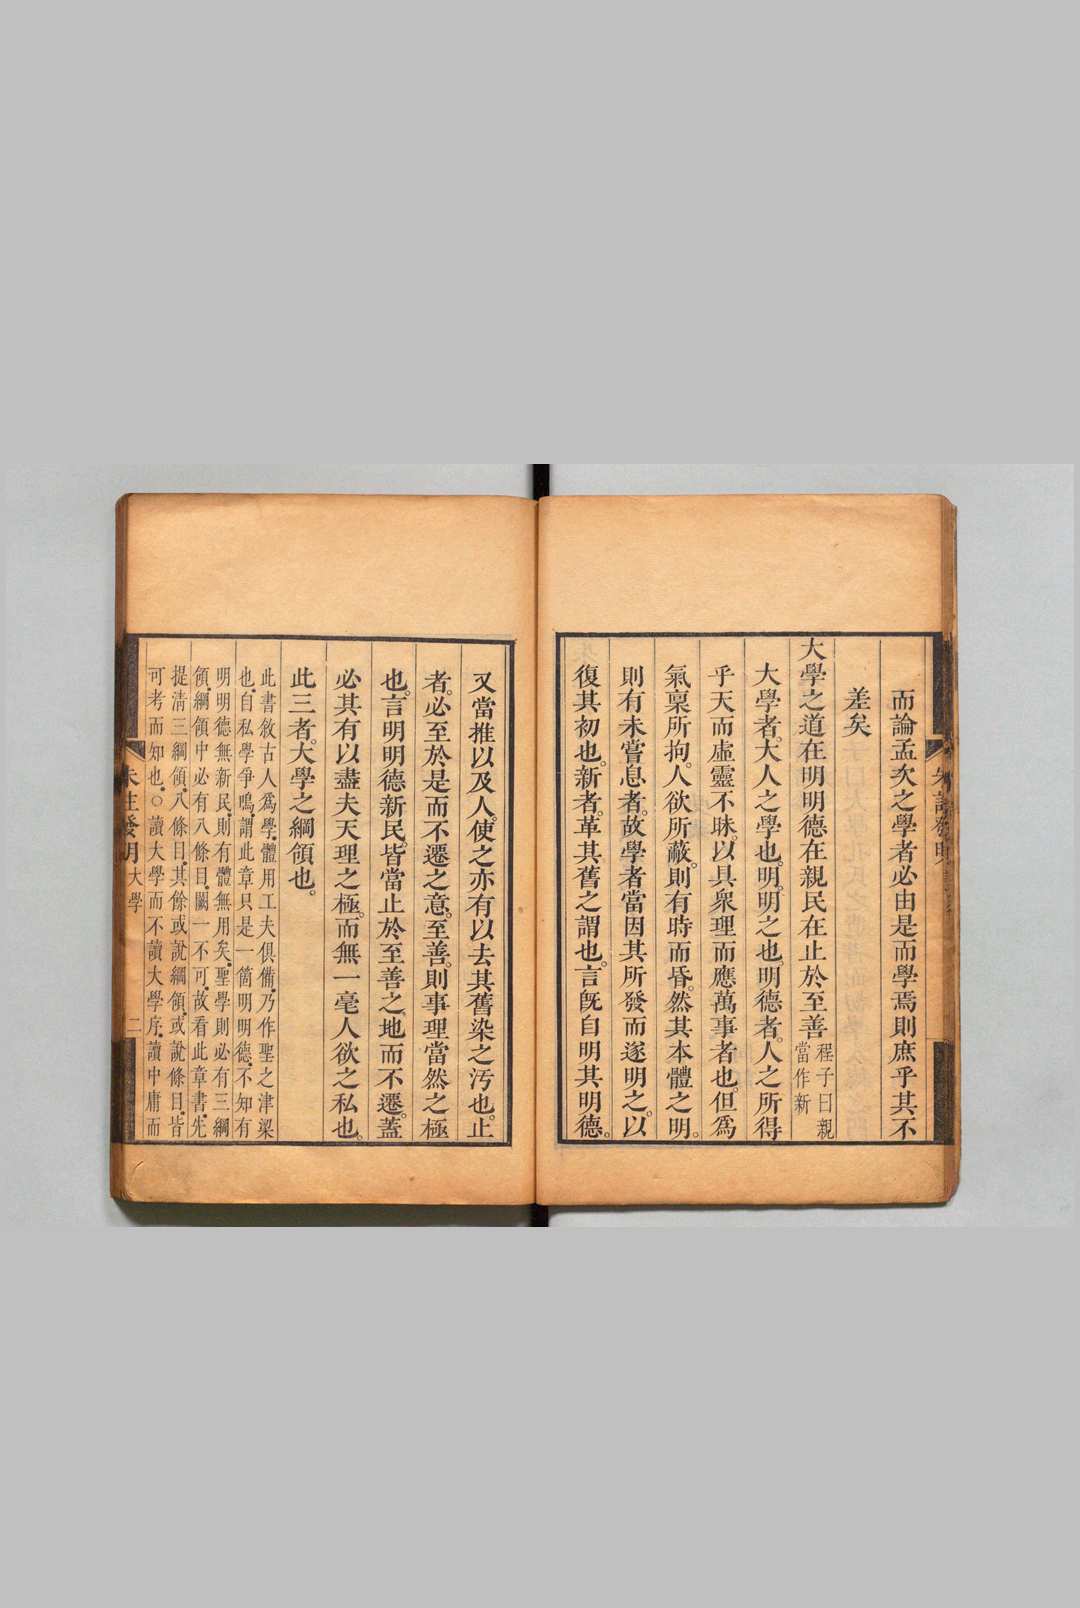 而論孟次之學者必由是而學焉則庶乎其不
差矣
大學之道在明明德在親民在止於至善程子曰親
當作新
大學者。大人之學也。明。明之也。明德者。人之所得
乎天而虛靈不昧。以具衆理而應萬事者也。但爲
氣稟所拘。人欲所蔽。則有時而昏。然其本體之明。
則有未嘗息者。故學者當因其所發而遂明之。以
復其初也。新者。革其舊之謂也。言旣自明其明德。
又當推以及人。使之亦有以去其舊染之汚也。止
者。必至於是而不遷之意。至善。則事理當然之極
也。言明明德新民。皆當止於至善之地而不遷。蓋
必其有以盡夫天理之極。而無一毫人欲之私也。
此三者。大學之綱領也。
此書敘古人爲學。體用工夫俱備。乃作聖之津梁
也。自私學爭鳴。謂此章只是一箇明明德。不知有
明明德無新民。則有體無用矣。聖學則必有三綱
領。綱領中必有八條目。闕一不可。故看此章書。先
提清三綱領。八條目。其餘或說綱領。或說條目。皆
可考而知也。○讀大學而不讀大學序。讀中庸而
朱註發明 大學 二